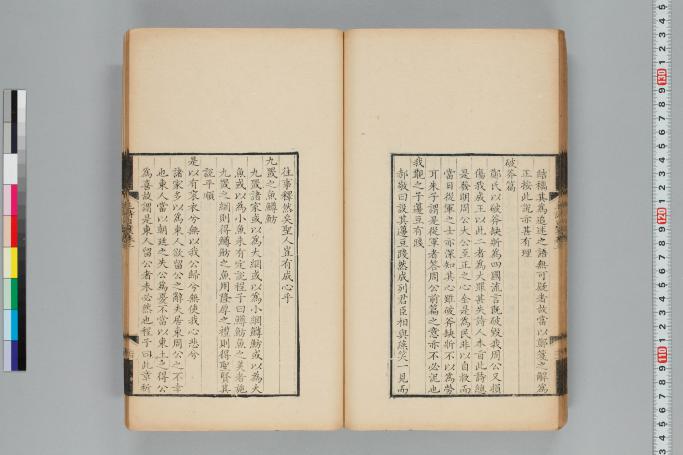 結縭其為追述之語無可疑者故當以鄭箋之解為
正按此說亦甚有理
破斧篇
鄭氏以破斧缺斨為四國流言既破毀我周公又損
傷我成王以此二者為大罪甚失詩人本旨此詩總
是發明周公大公至正之心全是為民非以自救而
當日從軍之士亦深知其心雖破斧缺斨不以為勞
耳朱子謂是從軍者答周公前篇之意亦不必泥也
我覯之子籩豆有踐
郝敬曰設其籩豆踐然成列君臣相與燕笑一見而
往事釋然矣聖人豈有成心乎
九罭之魚鱒魴
九罭諸家或以為大網或以為小網鱒魴或以為大
魚或以為小魚未有定說程子曰鱒魴魚之美者施
九罭之網則得鱒魴之魚用隆厚之禮則得聖賢其
說平順
是以有袞衣兮無以我公歸兮無使我心悲兮
諸家多以為東人欲留公之辭夫居東周公之不幸
也東人當以朝廷之失公為憂不當以東土之得公
為喜故謂是東人留公者未必然也程子曰此章祈